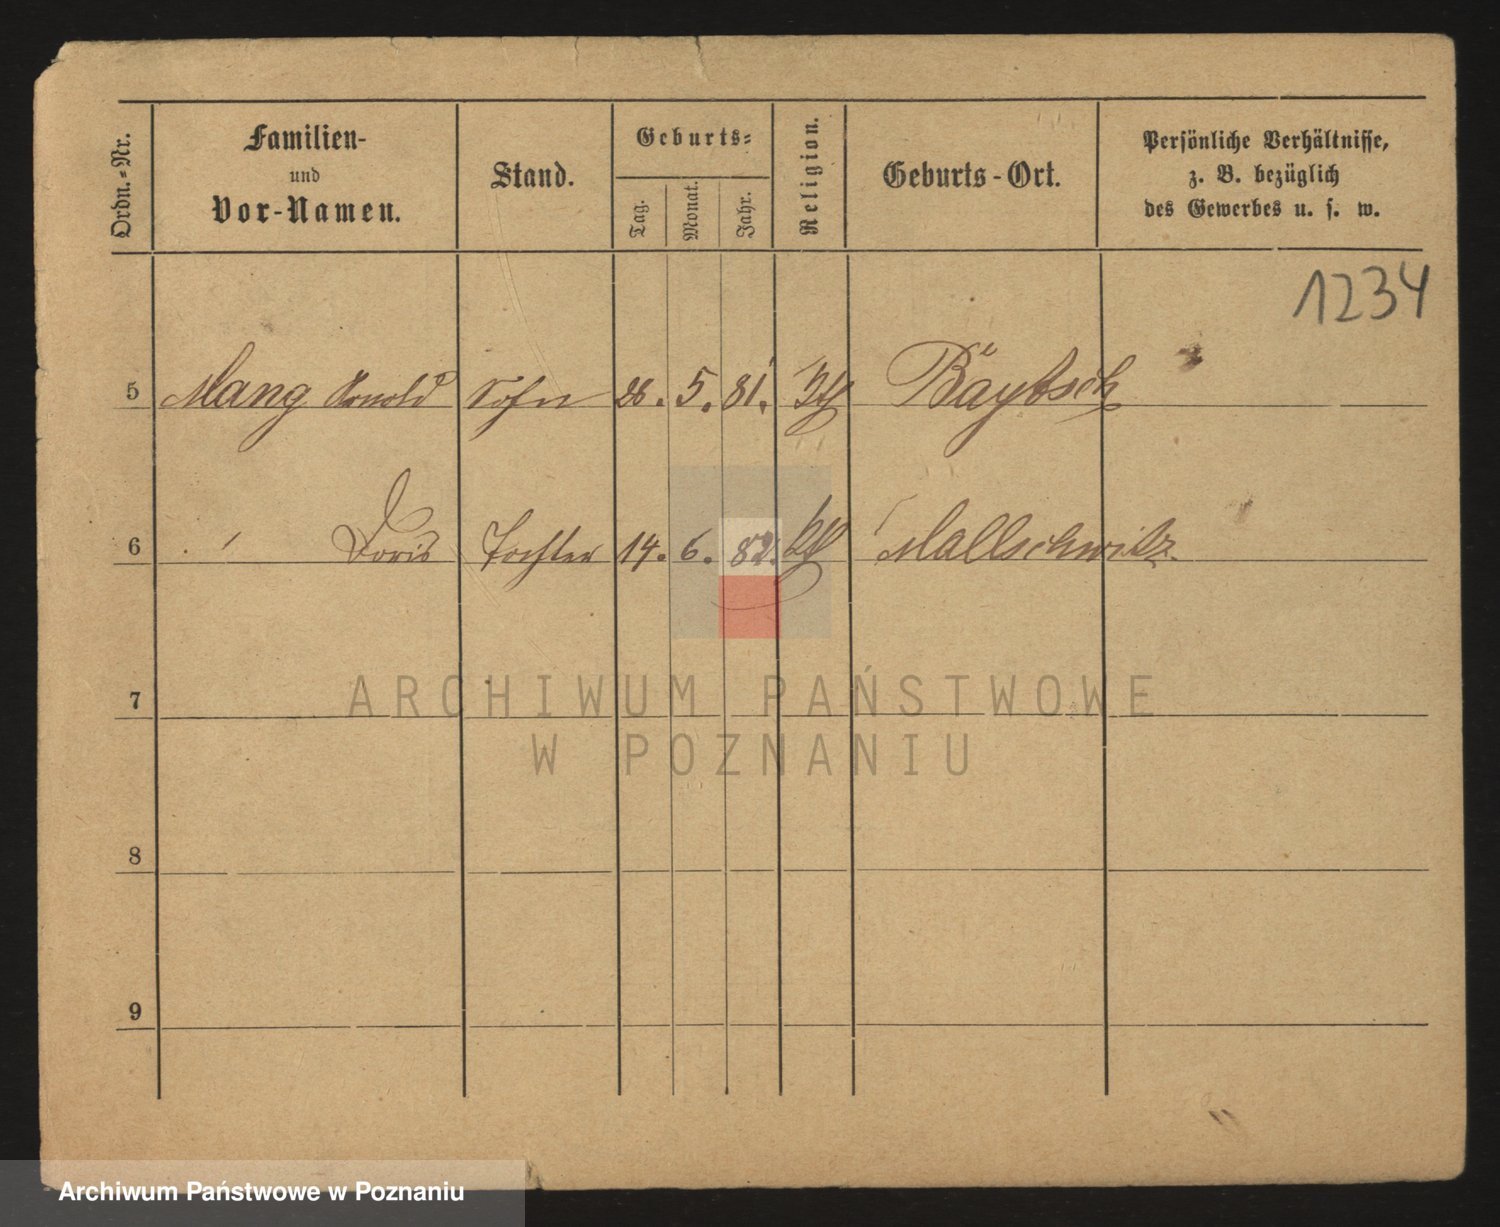 Ordn.-Nr.
Familien-
und
Vor-Namen.
Stand.
Geburts-
Tag.
Monat.
Jahr.
Religion.
Geburts-Ort.
Persönliche Verhältnisse,
z. B. bezüglich
des Gewerbes u. s. w.
1234
5 Mang Arnold Sohn 28. 5. 81. Bäytsch
6 Doris Tochter 14. 6. 82. Mallschwitz
7
8
9
ARCHIWUM PAŃSTWOWE
W POZNANIU
Archiwum Państwowe w Poznaniu